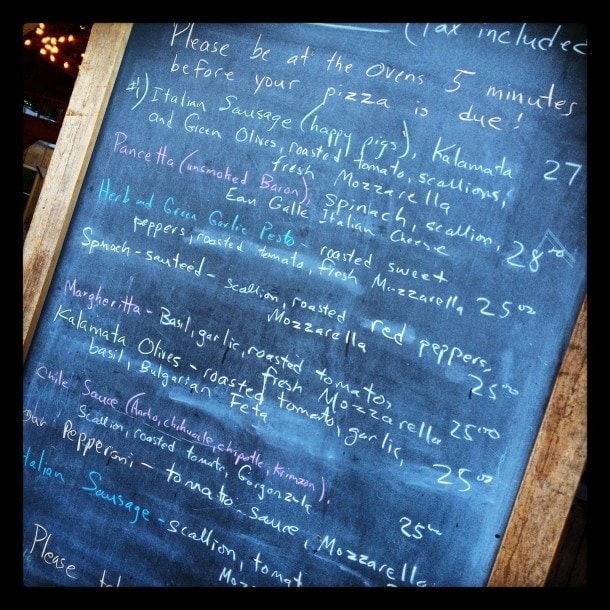 (Tax included
Please be at the ovens 5 minutes
before your pizza is due!
#1) Italian Sausage (happy pigs), Kalamata
and Green Olives, roasted tomato, scallions,
fresh Mozzarella 27
Pancetta (unsmoked Bacon), spinach, scallion,
Eau Galle Italian Cheese 28.00
Herb and Green Garlic Pesto - roasted sweet
peppers, roasted tomato, fresh Mozzarella 25.00
Spinach - sauteed - scallion, roasted red peppers,
Mozzarella 25.00
Margheritta - Basil, garlic, roasted tomato,
fresh Mozzarella 25.00
Kalamata Olives - roasted tomato, garlic,
basil, Bulgarian Feta 25.00
Chile Sauce (Ancho, chihuacle, chipotle, Krimzon),
Scallion, roasted tomato, Gorgonzola 25.00
Pepperoni - tomato-sauce, Mozzarella
talian Sausage - scallion, tomat
Mo
Please